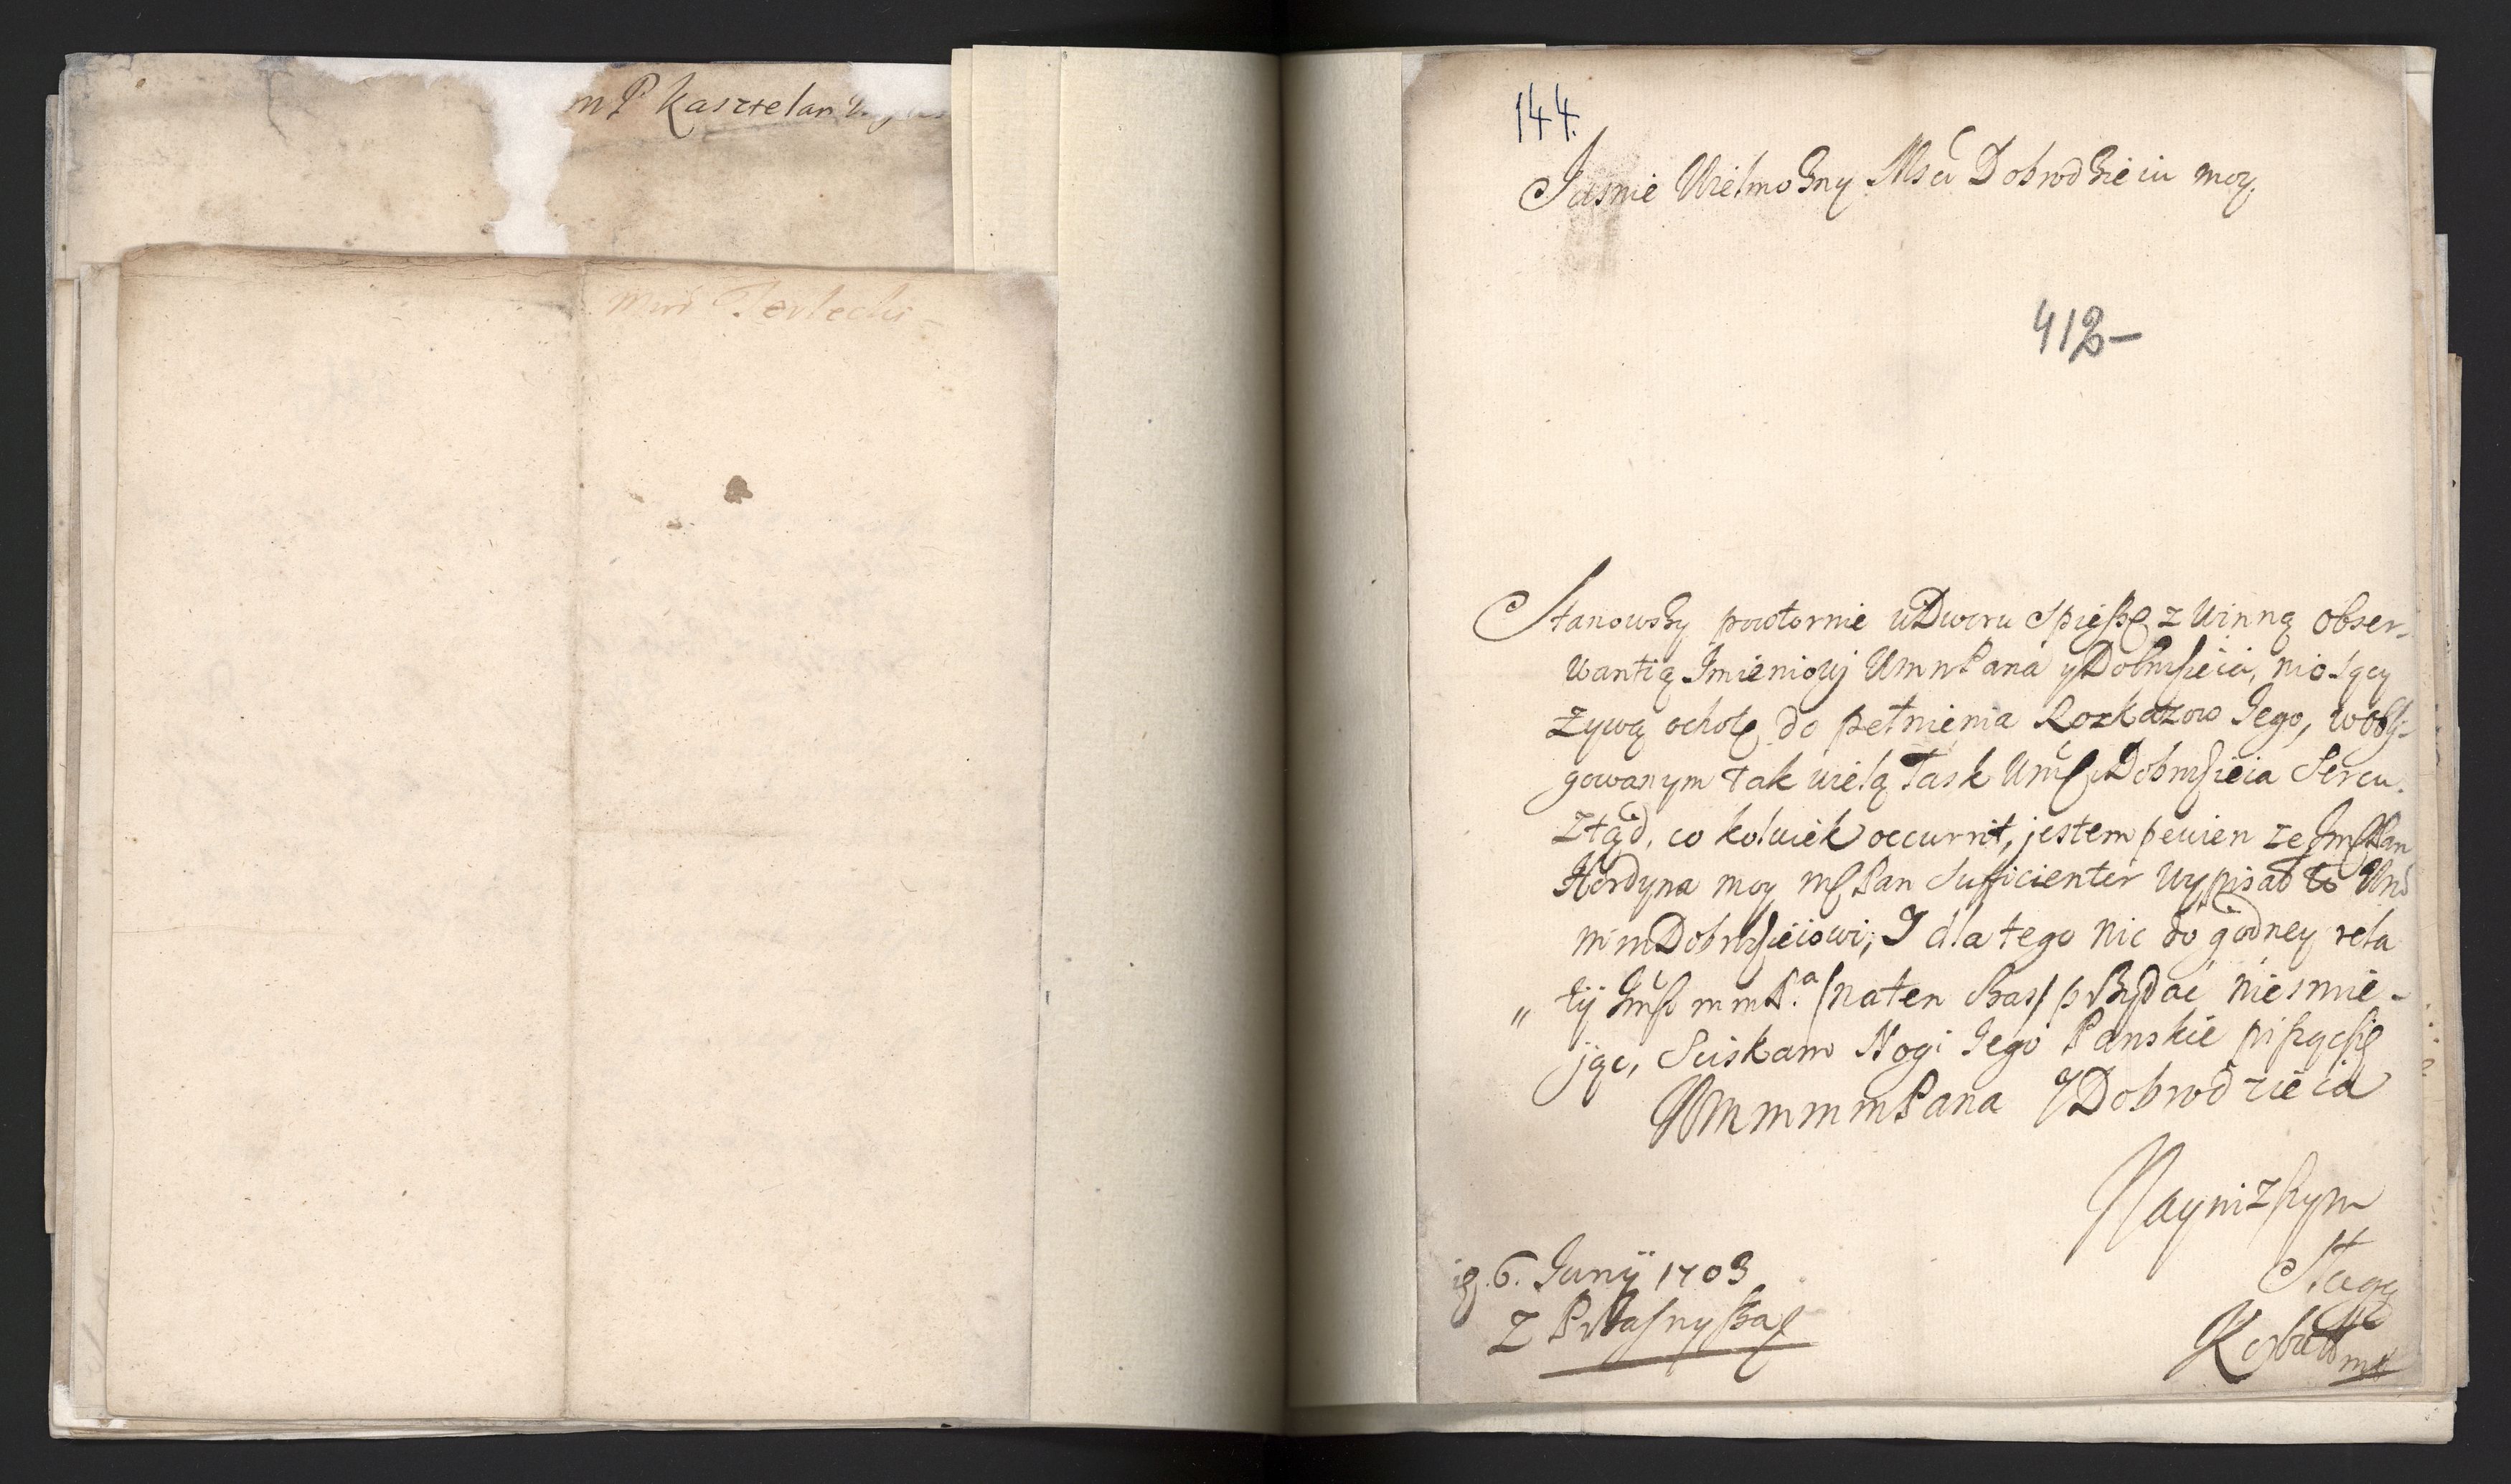 m P Kasztelan
Mwi Terlecki
144.
Jasnie Wielmozny Msci Dobrodzieiu moy.
412-
Stanowszy powtornie u Dworu spieszę z winną obser-
wantią Imieniowj Wmn Pana y Dobrodzieia, niosący
żywą ochotę do pełnienia Rozkazow Jego, w obli-
gowanym tak wielą łask Wmści Dobrodzieia Sercu.
Ztąd, co kolwiek occurrit, jestem pewien ze Jmść Pan
Hordyna moy mść Pan sufficienter wypisał to Wm
mm Dobrodzieiowi; I dla tego nic do godney rela
" tij Jmści mm P.a /na ten czas/ przydać niesmie-
jąc, Sciskam Nogi Jego Panskie pisząc się
Wmmmm Pana y Dobrodzieia
Nayniszszym
Sługą
6. Junij 1703
z Przasnysza